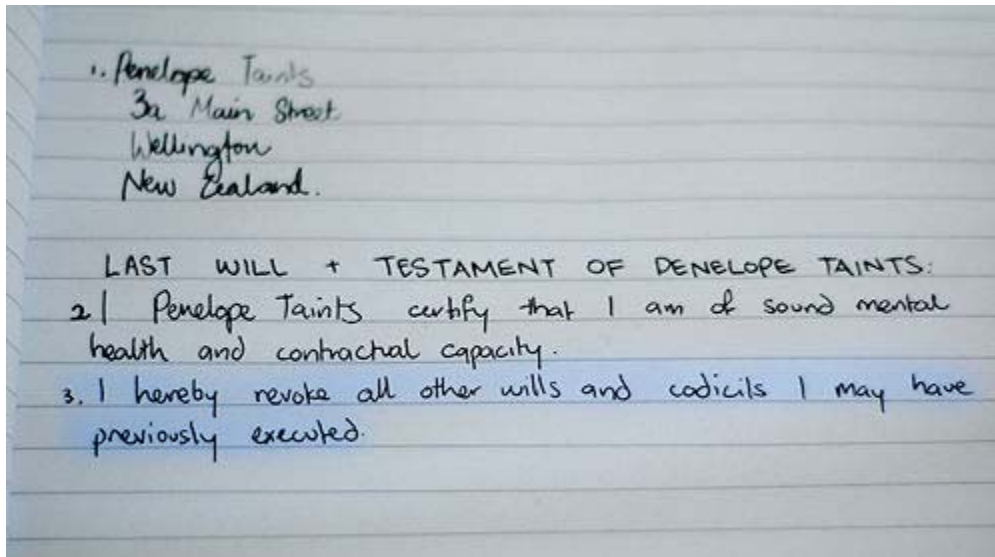 1. Penelope Taints
3a Main Street
Wellington
New Zealand.
LAST WILL + TESTAMENT OF PENELOPE TAINTS:
2 I Penelope Taints certify that I am of sound mental
health and contractual capacity.
3. I hereby revoke all other wills and codicils I may have
previously executed.